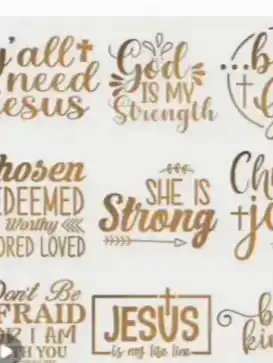 y'all
need
Jesus
God
IS MY
Strength
...b
Chosen
REDEEMED
Worthy
ADORED LOVED
SHE IS
Strong
Ch
je
Don't Be
AFRAID
FOR I AM
WITH YOU
JESUS
is my life line
b
ki